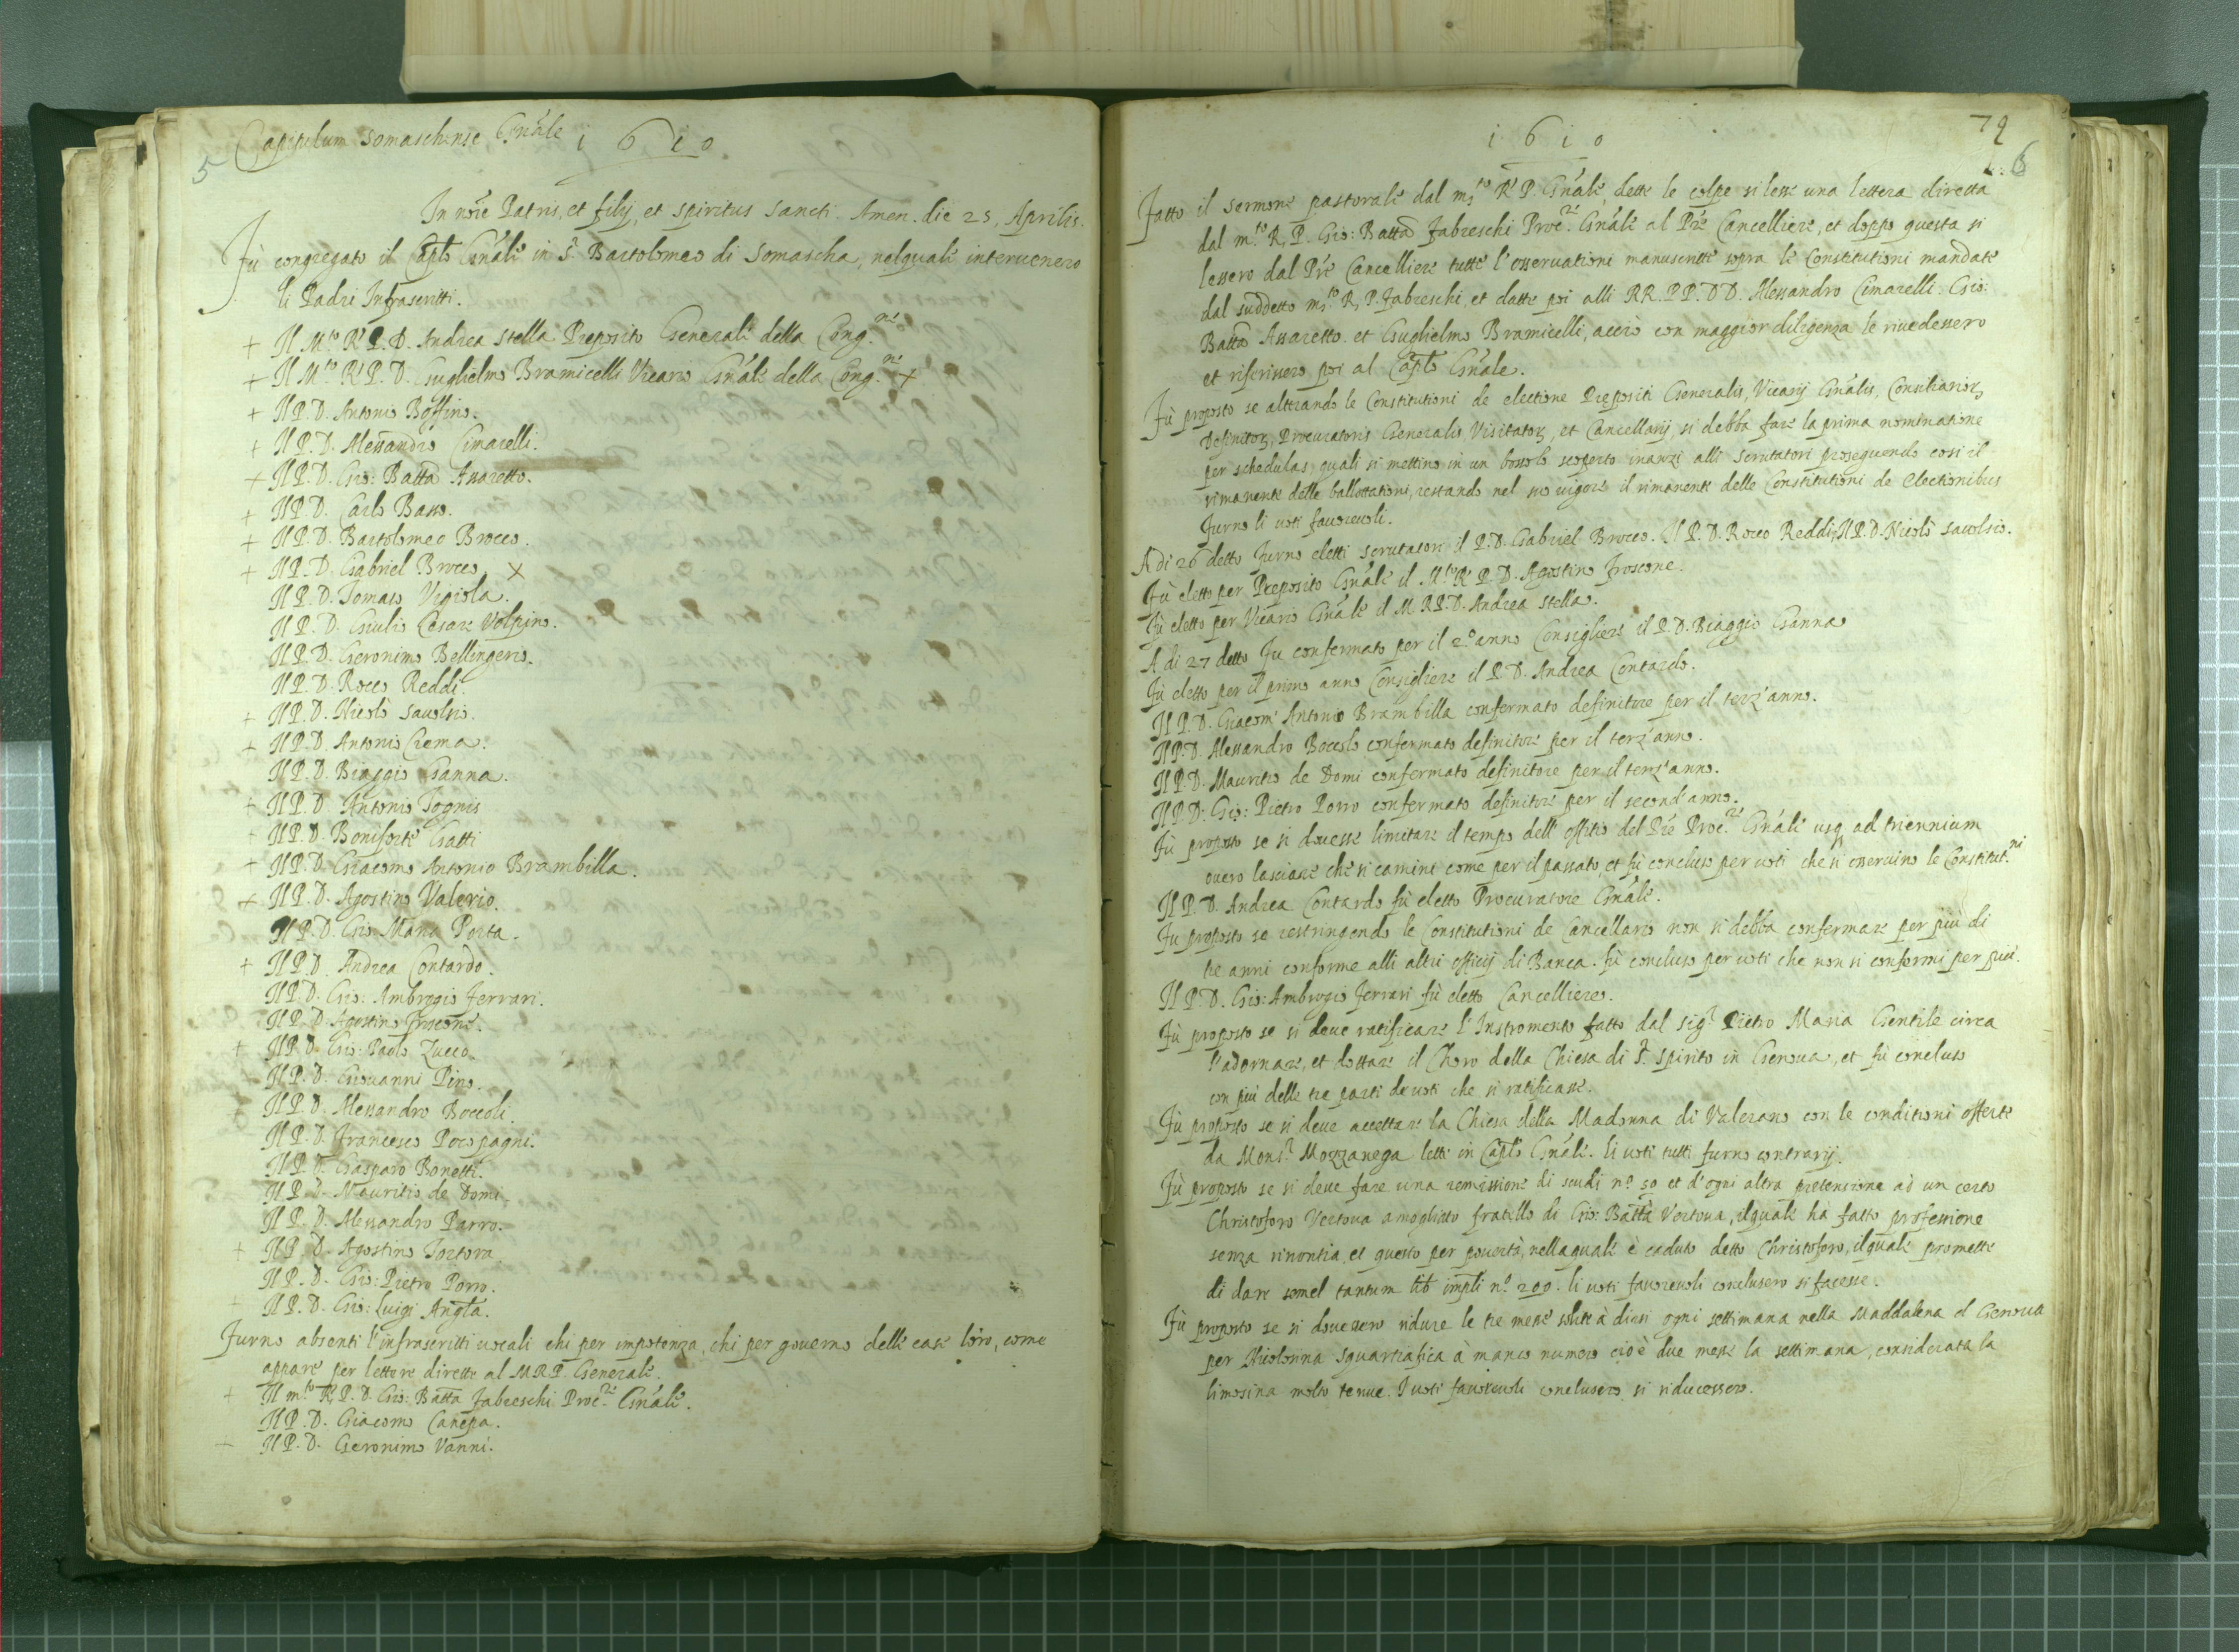 Capitulum Somaschense Gnãle 1610.
5
In nõie Patris, et filij, et spiritus sancti. Amen. die 25, Aprilis.
Fù congregato il Caplõ Gnãle in S. Bartolomeo di Somascha, nelquale interuenero
li Padri Infrascritti.
+ Il M.to R.P.D. Andrea Stella Preposito Generale della Cong.ne
+ Il M.to R.P.D. Guglielmo Bramicelli Vicario Gnãle della Cong.ne +
+ Il P.D. Antonio Boffino.
+ Il P.D. Alessandro Cimarelli.
+ Il P.D. Gio: Battã Assaretto.
+ Il P.D. Carlo Basso.
+ Il P.D. Bartolomeo Brocco.
+ Il P.D. Gabriel Brocco. x
Il P.D. Tomaso Vigiola.
Il P.D. Giulio Cesare Volpino.
Il P.D. Geronimo Bellingeri.
Il P.D. Rocco Reddi.
+ Il P.D. Nicolò Sauolsio.
+ Il P.D. Antonio Crema.
Il P.D. Biaggio Ganna.
+ Il P.D. Antonio Tognis
+ Il P.D. Boniforte Gatti
+ Il P.D. Giacomo Antonio Brambilla.
+ Il P.D. Agostino Valerio.
Il P.D. Gio: Maria Porta.
+ Il P.D. Andrea Contardo.
Il P.D. Gio: Ambrogio Ferrari.
Il P.D. Agostino Froscone.
+ Il P.D. Gio: Paolo Zucco.
+ Il P.D. Giouanni Pino.
+ Il P.D. Alessandro Boccoli.
Il P.D. Francesco Pocopagni.
Il P.D. Gasparo Bonetti.
Il P.D. Mauritio de Domi.
Il P.D. Alessandro Parro.
+ Il P.D. Agostino Tortora
Il P.D. Gio: Pietro Porro.
+ Il P.D. Gio: Luigi Angta.
Furno absenti l'infrascritti uocali chi per impotenza, chi per gouerno delle case loro, come
appare per lettere dirette al M.R.P. Generale.
+ Il m.to R.P.D. Gio: Batta Fabreschi Proc.re Gnãle.
Il P.D. Giacomo Canepa.
+ Il P.D. Geronimo Vanni.
1610
79
6
Fatto il sermone pastorale dal m.to R.P. Gnãle, dette le colpe si lesse una lettera diretta
dal m.to R.P. Gio: Battã Fabreschi Proc.re Gnãle al Prẽ Cancelliere, et doppo questa si
lessero dal Prẽ Cancelliere tutte l'osseruationi manuscritte sopra le Constitutioni mandate
dal suddetto m.to R.P. Fabreschi, et datte poi alli RR.PP.DD. Alessandro Cimarelli. Gio:
Battã Assaretto. et Guglielmo Bramicelli, acciò con maggior diligenza le riuedessero
et riferissero poi al Caplõ Gnãle.
Fù proposto se alterando le Constitutioni de electione Prepositi Generalis, Vicarij Gnãlis, Consiliarioꝝ
Definitoꝝ, Procuratoris Generalis, Visitatoꝝ, et Cancellarij, si debba fare la prima nominatione
per schedulas, quali si mettino in un bossolo scoperto inanzi alli scrutatori proseguendo così il
rimanente delle ballottationi, restando nel suo uigore il rimanente delle Constitutioni de electionibus
Furno li uoti fauoreuoli.
A di 26 detto Furno eletti scrutatori il P.D. Gabriel Brocco. Il P.D. Rocco Reddi, Il P.D. Nicolò Sauolsio.
Fù eletto per Preposito Gnãle il M.to R.P.D. Agostino Froscone.
Fù eletto per Vicario Gnãle il M.R.P.D. Andrea Stella.
A di 27 detto Fu confermato per il 2.º anno Consigliere il P.D. Biaggio Ganna
Fù eletto per il primo anno Consigliere il P.D. Andrea Contardo.
Il P.D. Giacom' Antonio Brambilla confermato definitore per il terz'anno.
Il P.D. Alessandro Boccolo confermato definitore per il terz'anno.
Il P.D. Mauritio de Domi confermato definitore per il terz'anno.
Il P.D. Gio: Pietro Porro confermato definitore per il second'anno.
Fù proposto se si douesse limitare il tempo dell'offitio del Prẽ Proc.re Gnãle usq ad triennium
ouero lasciare che si camini come per il passato, et fù concluso per uoti che si osseruino le Constitut.ni
Il P.D. Andrea Contardo fù eletto Procuratore Gnãle.
Fu proposto se restringendo le Constitutioni de Cancellario non si debba confermare per più di
tre anni conforme alli altri officij di Banca. fù concluso per uoti che non si confermi per più.
Il P.D. Gio: Ambrogio Ferrari fù eletto Cancelliero.
Fù proposto se si deue ratificare l'Instromento fatto dal Sig.r Pietro Maria Gentile circa
l'adornare, et dottare il Choro della Chiesa di S. Spirito in Genoua, et fù concluso
con più delle tre parti de uoti che si ratificasse.
Fù proposto se si deue accettare la Chiesa della Madonna di Valerano con le conditioni offerte
da Mons.r Mozzanega lette in Caplõ Gnãle. li uoti tutti furno contrarij.
Fù proposto se si deue fare una remissione di scudi nº 50 et d'ogni altra pretensione ad un certo
Christoforo Vertoua amogliato fratello di Gio: Battã Vertoua, ilquale hà fatto professione
senza rinontia, et questo per pouertà, nellaquale è caduto detto Christoforo, ilquale promette
di dare semel tantum lib impli nº 200. li uoti fauoreuoli conclusero si facesse.
Fù proposto se si douessero ridure le tre messe solite à dirsi ogni settimana nella Maddalena di Genoua
per Nicolosina Squartrafica à manco numero cioè due messe la settimana, considerata la
limosina molto tenue. I uoti fauoreuoli conclusero si riducessero.